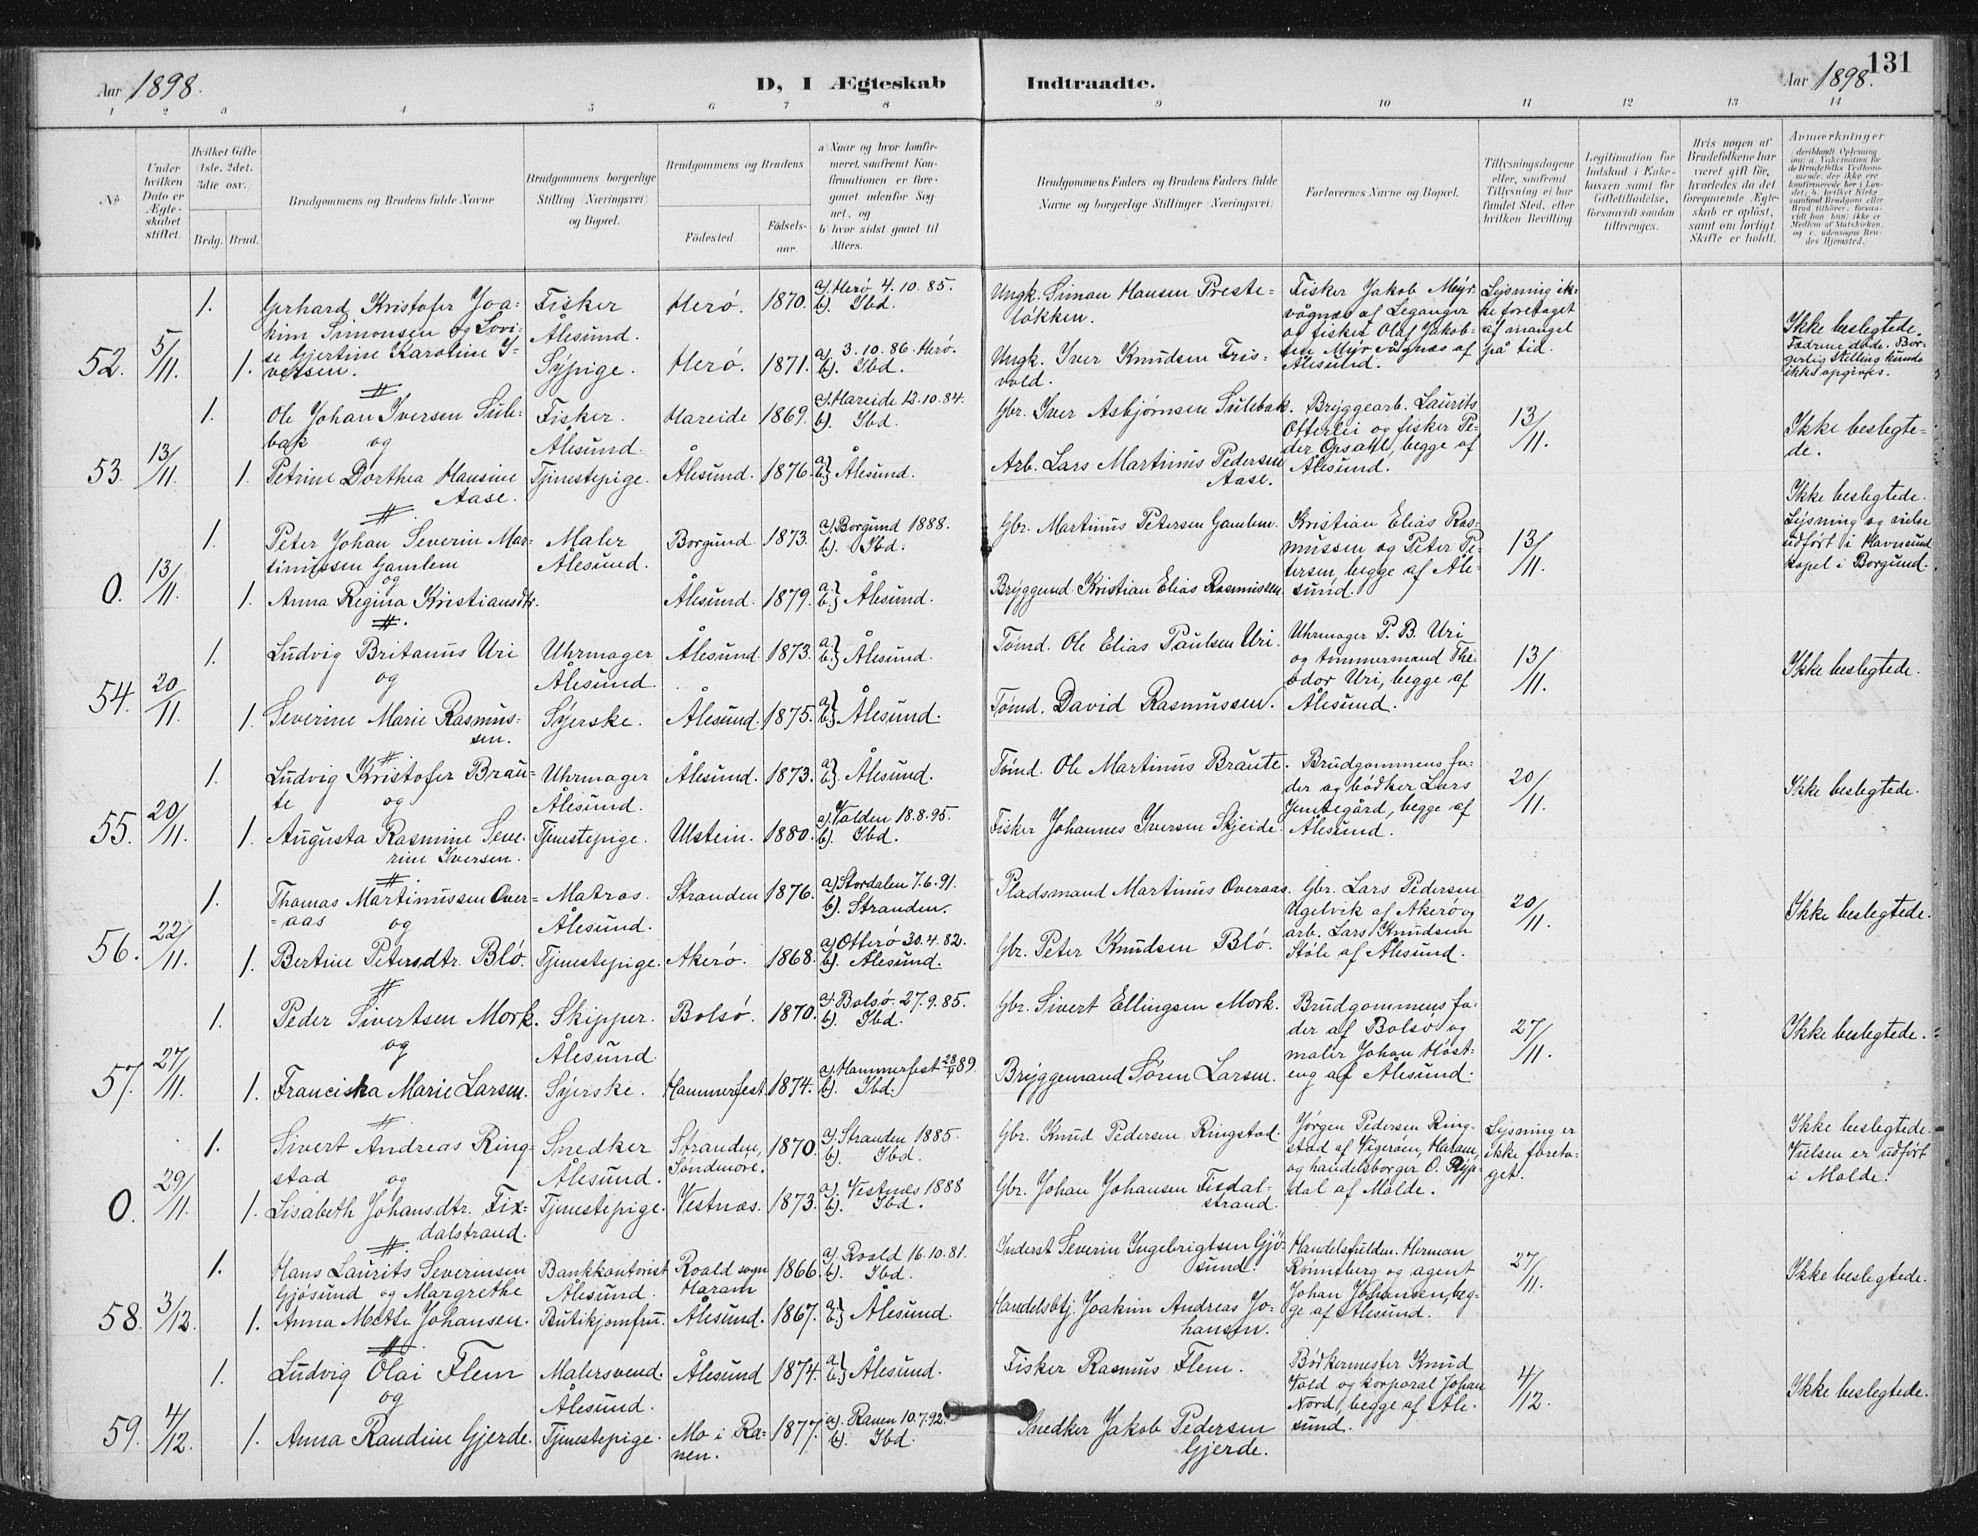 131
Aar 1898.
D, I Ægteskab Indtraadte.
Aar 1898.
1 2 3 4 5 6 7 8 9 10 11 12 13 14
No.
Under hvilken Dato er Ægteskabet stiftet.
Hvilket Gifte (1ste, 2det, 3die osv.)
Brdg. Brud.
Brudgommens og Brudens fulde Navne
Brudgommens borgerlige Stilling (Næringsvei) og Bopæl.
Brudgommens og Brudens
Fødested. Fødselsaar.
a Naar og hvor konfirmeret, saafremt Konfirmationen er foregaaet udenfor Sognet, og
b hvor sidst gaaet til Alters.
Brudgommens Faders og Brudens Faders fulde Navne og borgerlige Stillinger (Næringsvei)
Forlovernes Navne og Bopæl.
Tillysningsdagene eller, saafremt Tillysning ei har fundet Sted, efter hvilken Bevilling
Legitimation for Indskud i Enkekassen samt for Giftetilladelse, forsaavidt saadan tiltrænges.
Hvis nogen af Brudefolkene har været gift før, hvorledes da det foregaaende Ægteskab er opløst, samt om lovligt Skifte er holdt.
Anmærkninger
52. 5/11. 1. Gerhard Kristofer Joa-
kim Simonsen og Lovi-
se Gjertine Karoline I-
1. versen.
Fisker
Ålesund.
Sypige.
Herø. 1870. a). Herø 4.10.85.
b). Ibd.
Herø. 1871. a). 3.10.86. Herø.
b). Ibd.
Ungk. Simon Hansen Preste-
løkken.
Ungk. Iver Knudsen Fris-
vold.
Fisker Jakob Myr-
vågnæs af Leganger
og fisker Olaf Jakob-
sen Myrvågnæs af
Ålesund.
Lysning ik-
ke foretaget
af mangel
på tid.
Ikke beslegtede.
Fædrene døde. Bor-
gerlig stilling kunde
ikke opgives.
53. 13/11. 1. Ole Johan Iversen Sule-
bak og
1. Petrine Dorthea Hansine
Aase.
Fisker.
Ålesund
Tjenestepige.
Hareide 1869. a). Hareide 12.10.84.
b). Ibd.
Ålesund. 1876. a) b) Ålesund.
Gbr. Iver Asbjørnsen Sulebak.
Arb. Lars Martinus Pedersen
Aase.
Bryggearb. Laurits
Otterlei og fisker Pe-
der Opsahl, begge af
Ålesund.
13/11.
Ikke beslegte-
de.
0. 13/11. 1. Peter Johan Severin Mar-
tinussen Gamlem
og
1. Anna Regina Kristiansdtr.
Maler
Ålesund.
Borgund 1873. a). Borgund 1888.
b). Ibd.
Ålesund. 1879. a. b. Ålesund.
Gbr. Martinus Petersen Gamlem.
Bryggemd. Kristian Elias Rasmussen.
Kristian Elias Ras-
mussen og Peter Pe-
tersen, begge af Åle-
sund.
13/11.
Ikke beslegtede.
Lysning og vielse
udført i Havnsund
kapel i Borgund.
54. 20/11. 1. Ludvig Britanus Uri
og
1. Severine Marie Rasmus-
sen.
Uhrmager
Ålesund.
Syerske.
Ålesund 1873. a) b) Ålesund.
Ålesund. 1875. a) b) Ålesund.
Tømd. Ole Elias Paulsen Uri.
Tømd. David Rasmussen.
Uhrmager P. B. Uri
og tømmermand The-
odor Uri, begge af
Ålesund.
13/11.
Ikke beslegtede.
55. 20/11. 1. Ludvig Kristofer Brau-
te og
1. Augusta Rasmine Seve-
rine Iversen.
Uhrmager
Ålesund.
Tjenestepige.
Ålesund. 1873. a) b) Ålesund.
Ulstein. 1880. a). Volden 18.8.95.
b). Ibd.
Tømd. Ole Martinus Braute.
Fisker Johannes Iversen Skjeide.
Brudgommens fa-
der og bødker Lars
Jemtegård, begge af
Ålesund.
20/11.
Ikke beslegtede.
56. 22/11. 1. Thomas Martinussen Over-
-aas og
1. Bertine Petersdtr. Blø.
Matros.
Ålesund.
Tjenestepige.
Stranden 1876. a). Stordalen 7.6.91.
b). Stranden.
Akerø. 1868. a) Otterø 30.4.82.
b). Ålesund.
Pladsmand Martinus Overaas.
Gbr. Peter Knudsen Blø.
Gbr. Lars Pedersen
Ugelvik af Akerø og
arb. Lars Knudsen
Støle af Ålesund.
20/11.
Ikke beslegtede.
57. 27/11. 1. Peder Sivertsen Mork.
og
1. Franciska Marie Larsen.
Skipper.
Ålesund.
Syerske.
Bolsø. 1870. a). Bolsø. 27.9.85.
b). Ibd.
Hammerfest. 1874. a) Hammerfest 28/4 89
b). Ibd.
Gbr. Sivert Ellingsen Mork.
Bryggemand Søren Larsen.
Brudgommens fa-
der af Bolsø og
maler Johan Høst-
eng af Ålesund.
27/11.
Ikke beslegtede.
0. 29/11. 1. Sivert Andreas Ring-
stad og
1. Lisabeth Johansdtr. Fix-
dalstrand.
Snedker
Ålesund.
Tjenestepige.
Stranden,
Søndmøre. 1870. a). Stranden 1885.
b). Ibd.
Vestnæs. 1873. a). Vestnæs 1888
b). Ibd.
Gbr. Knud Pedersen Ringstad.
Gbr. Johan Johansen Fisdal-
strand.
Jørgen Pedersen Ring-
stad af Vigerøen, Haram,
og handelsborger O. Ryp-
dal af Molde.
Lysning er
ikke foreta-
get.
Ikke beslegtede.
Vielsen er udført
i Molde.
58. 3/12. 1. Hans Laurits Severinsen
Gjøsund og Margrethe
1. Anna Mette Johansen.
Bankkontorist
Ålesund.
Butikjomfru.
Roald sogn
Haram 1866. a). Roald 16.10.81.
b). Ibd.
Ålesund. 1867. a) b) Ålesund.
Inderst Severin Ingebrigtsen Gjø-
sund.
Handelsbtj. Joakim Andreas Jo-
hansen.
Handelsfuldm. Herman
Rønneberg og agent
Johan Johansen, beg-
ge af Ålesund.
27/11.
Ikke beslegtede.
59. 4/12. 1. Ludvig Olai Flem
og
1. Anna Randine Gjerde.
Malersvend.
Ålesund.
Tjenestepige.
Ålesund 1874. a) b) Ålesund.
Mo i Ra-
nen. 1877. a). Ranen 10.7.92.
b). Ibd.
Fisker Rasmus Flem.
Snedker Jakob Pedersen
Gjerde.
Bødkermester Knud
Vold og korporal Johan
Nord, begge af Åle-
sund.
4/12.
Ikke beslegtede.